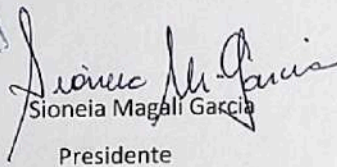 Sioneia M. Garcia
Sioneia Magali Garcia
Presidente